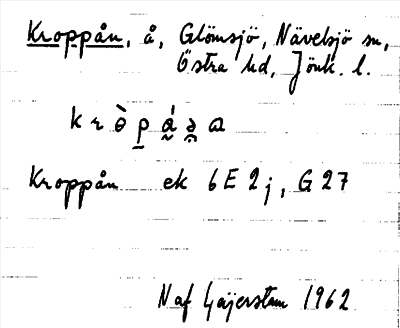 Kroppån, å, Glömsjö, Nävelsjö sn,
Östra hd, Jönk. l.
Kroppån ek 6E 2j, G27
N af Geijerstam 1962